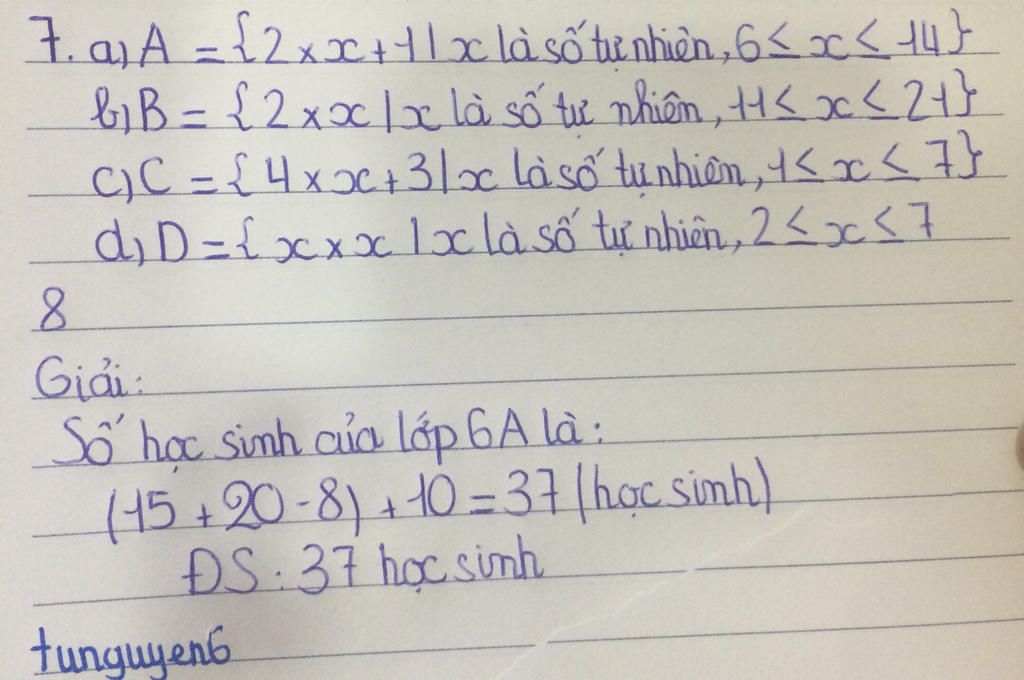 7. a) A = {2 x x + 1 | x là số tự nhiên, 6 ≤ x ≤ 14}
b) B = {2 x x | x là số tự nhiên, 11 ≤ x ≤ 21}
c) C = {4 x x + 3 | x là số tự nhiên, 1 ≤ x ≤ 7}
d) D = {x x x | x là số tự nhiên, 2 ≤ x ≤ 7
8
Giải:
Số học sinh của lớp 6A là:
(15 + 20 - 8) + 10 = 37 (học sinh)
ĐS: 37 học sinh
tunguyen6